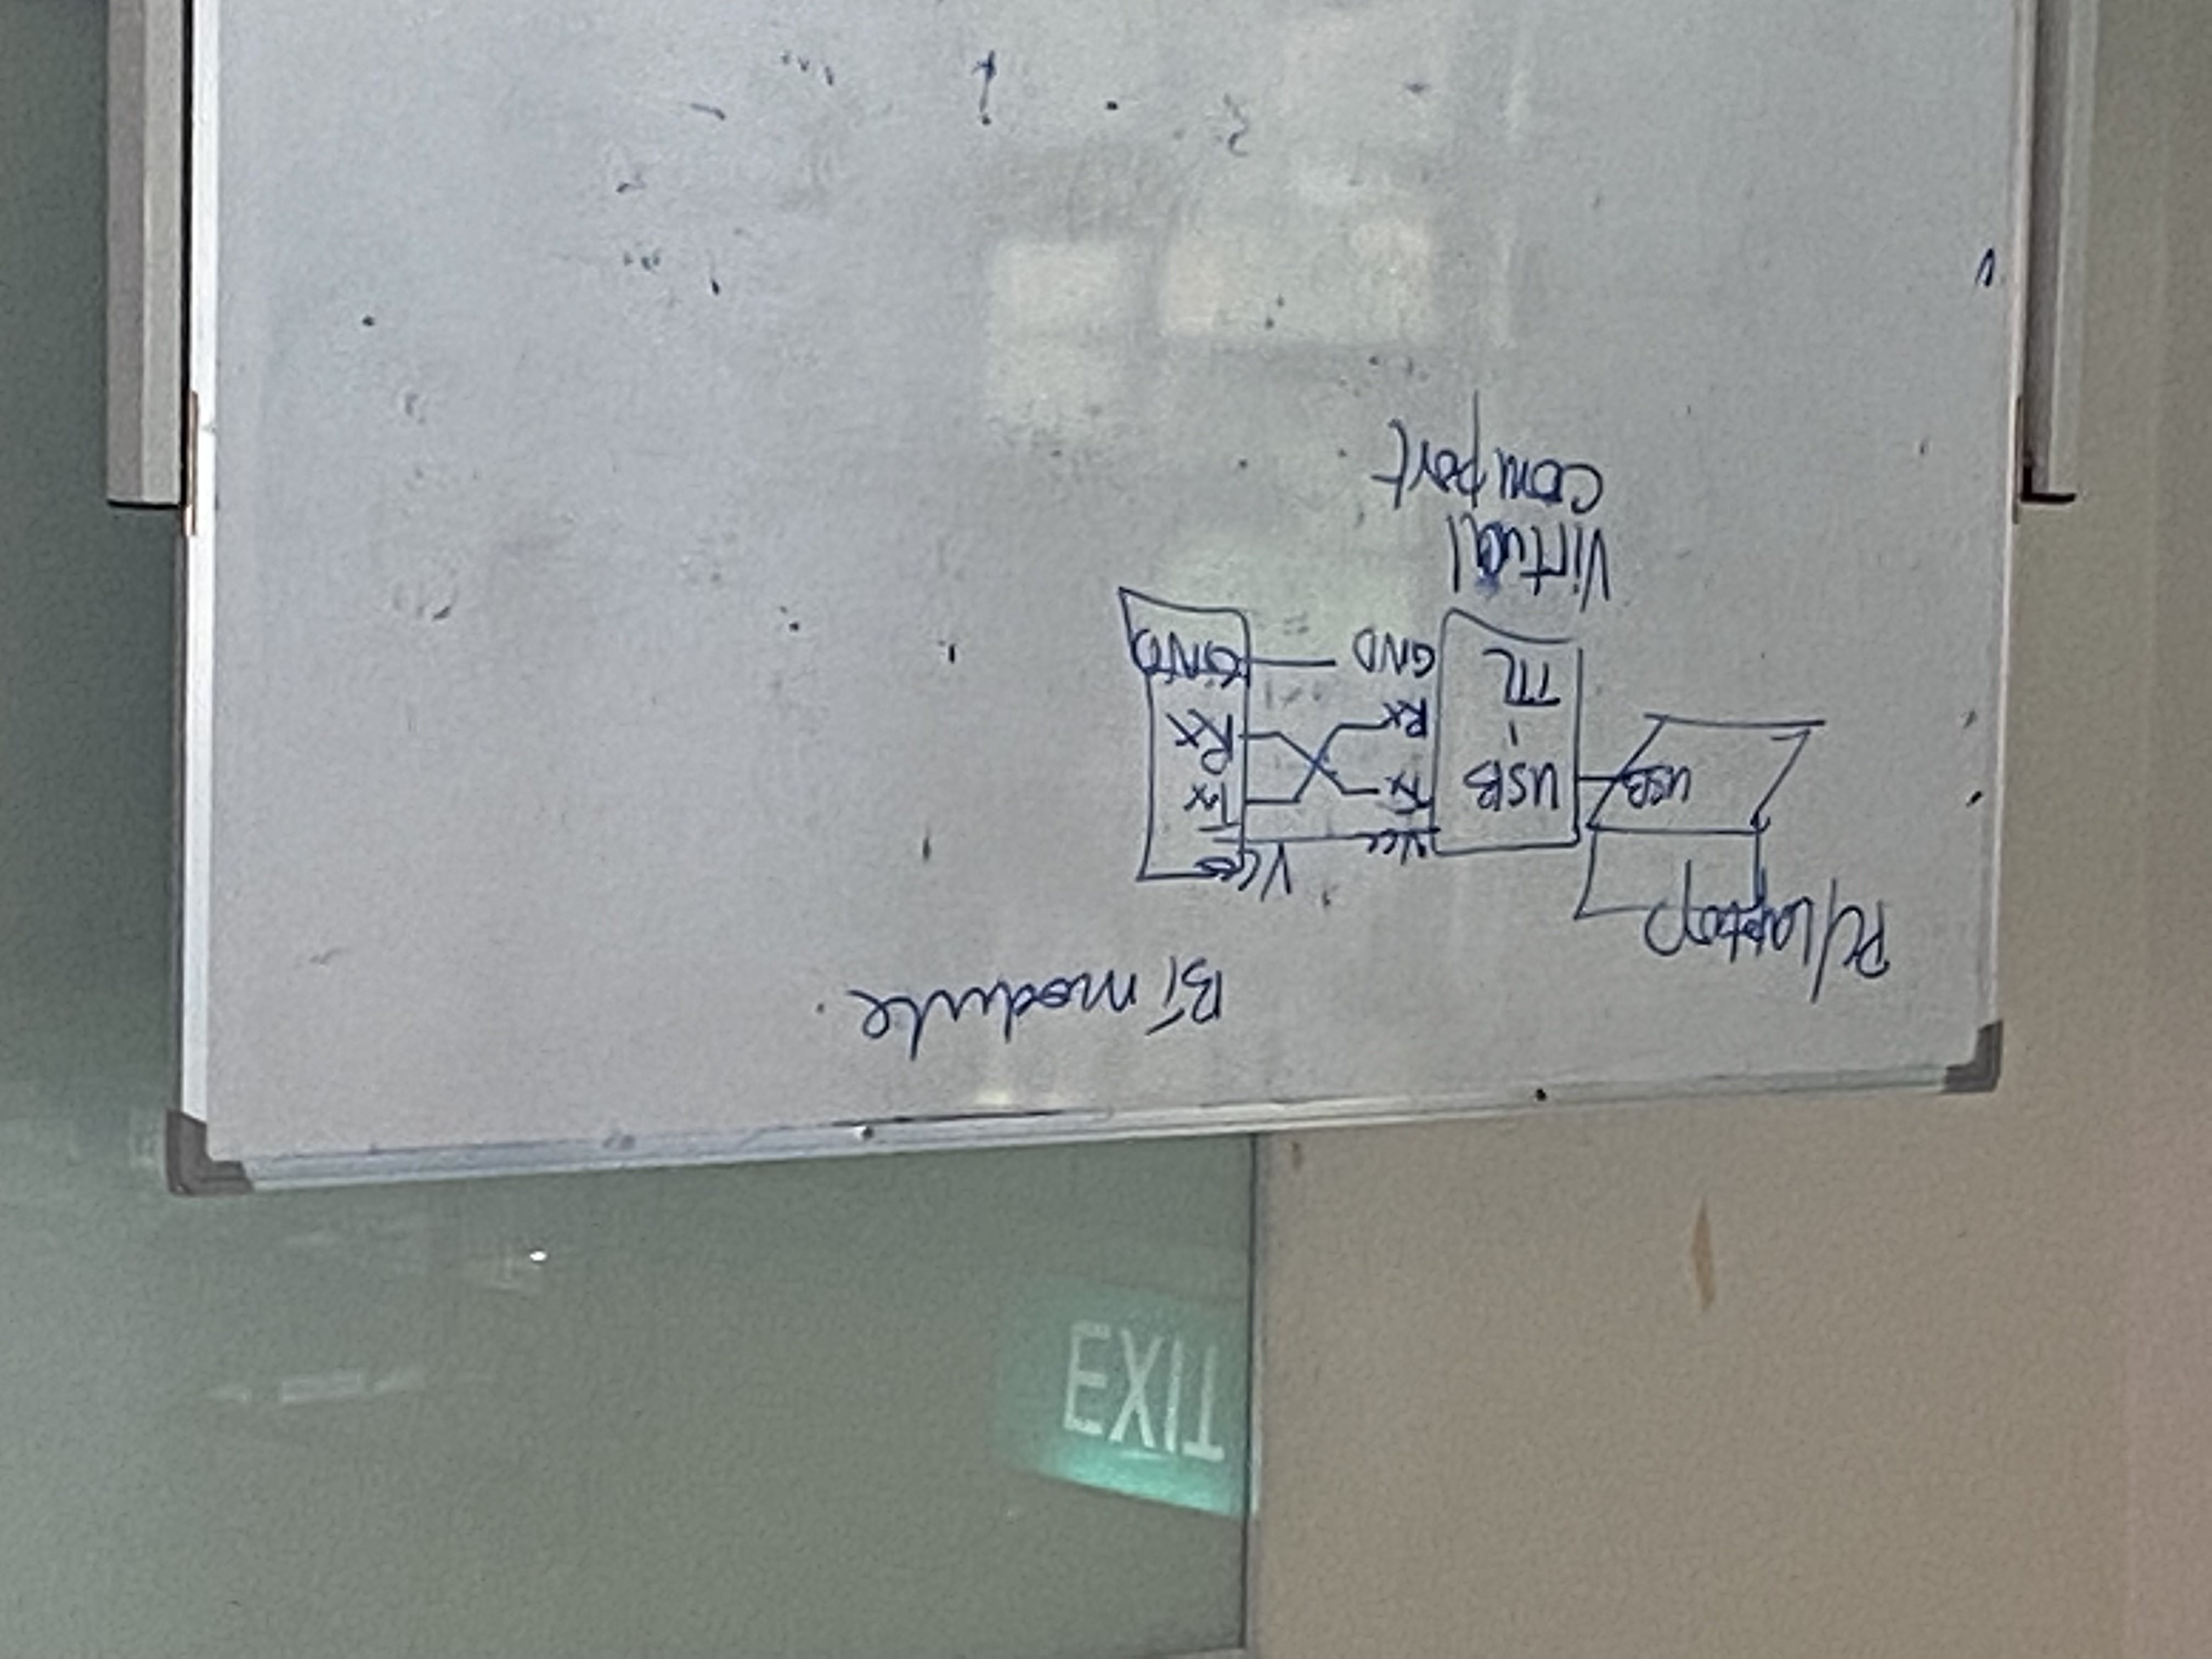 EXIT
BT module.
PC/Laptop
USB
USB
-
TTL
Vcc
Tx
Rx
GND
Vcc
Tx
Rx
GND
Virtual
Comport